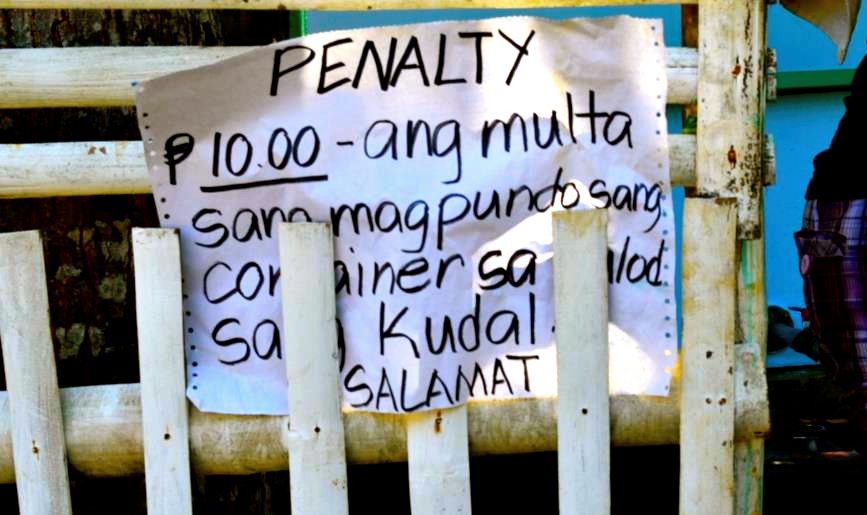 PENALTY
₱ 10.00 - ang multa
sang magpundo sang
container sa
sang Kudal.
SALAMAT